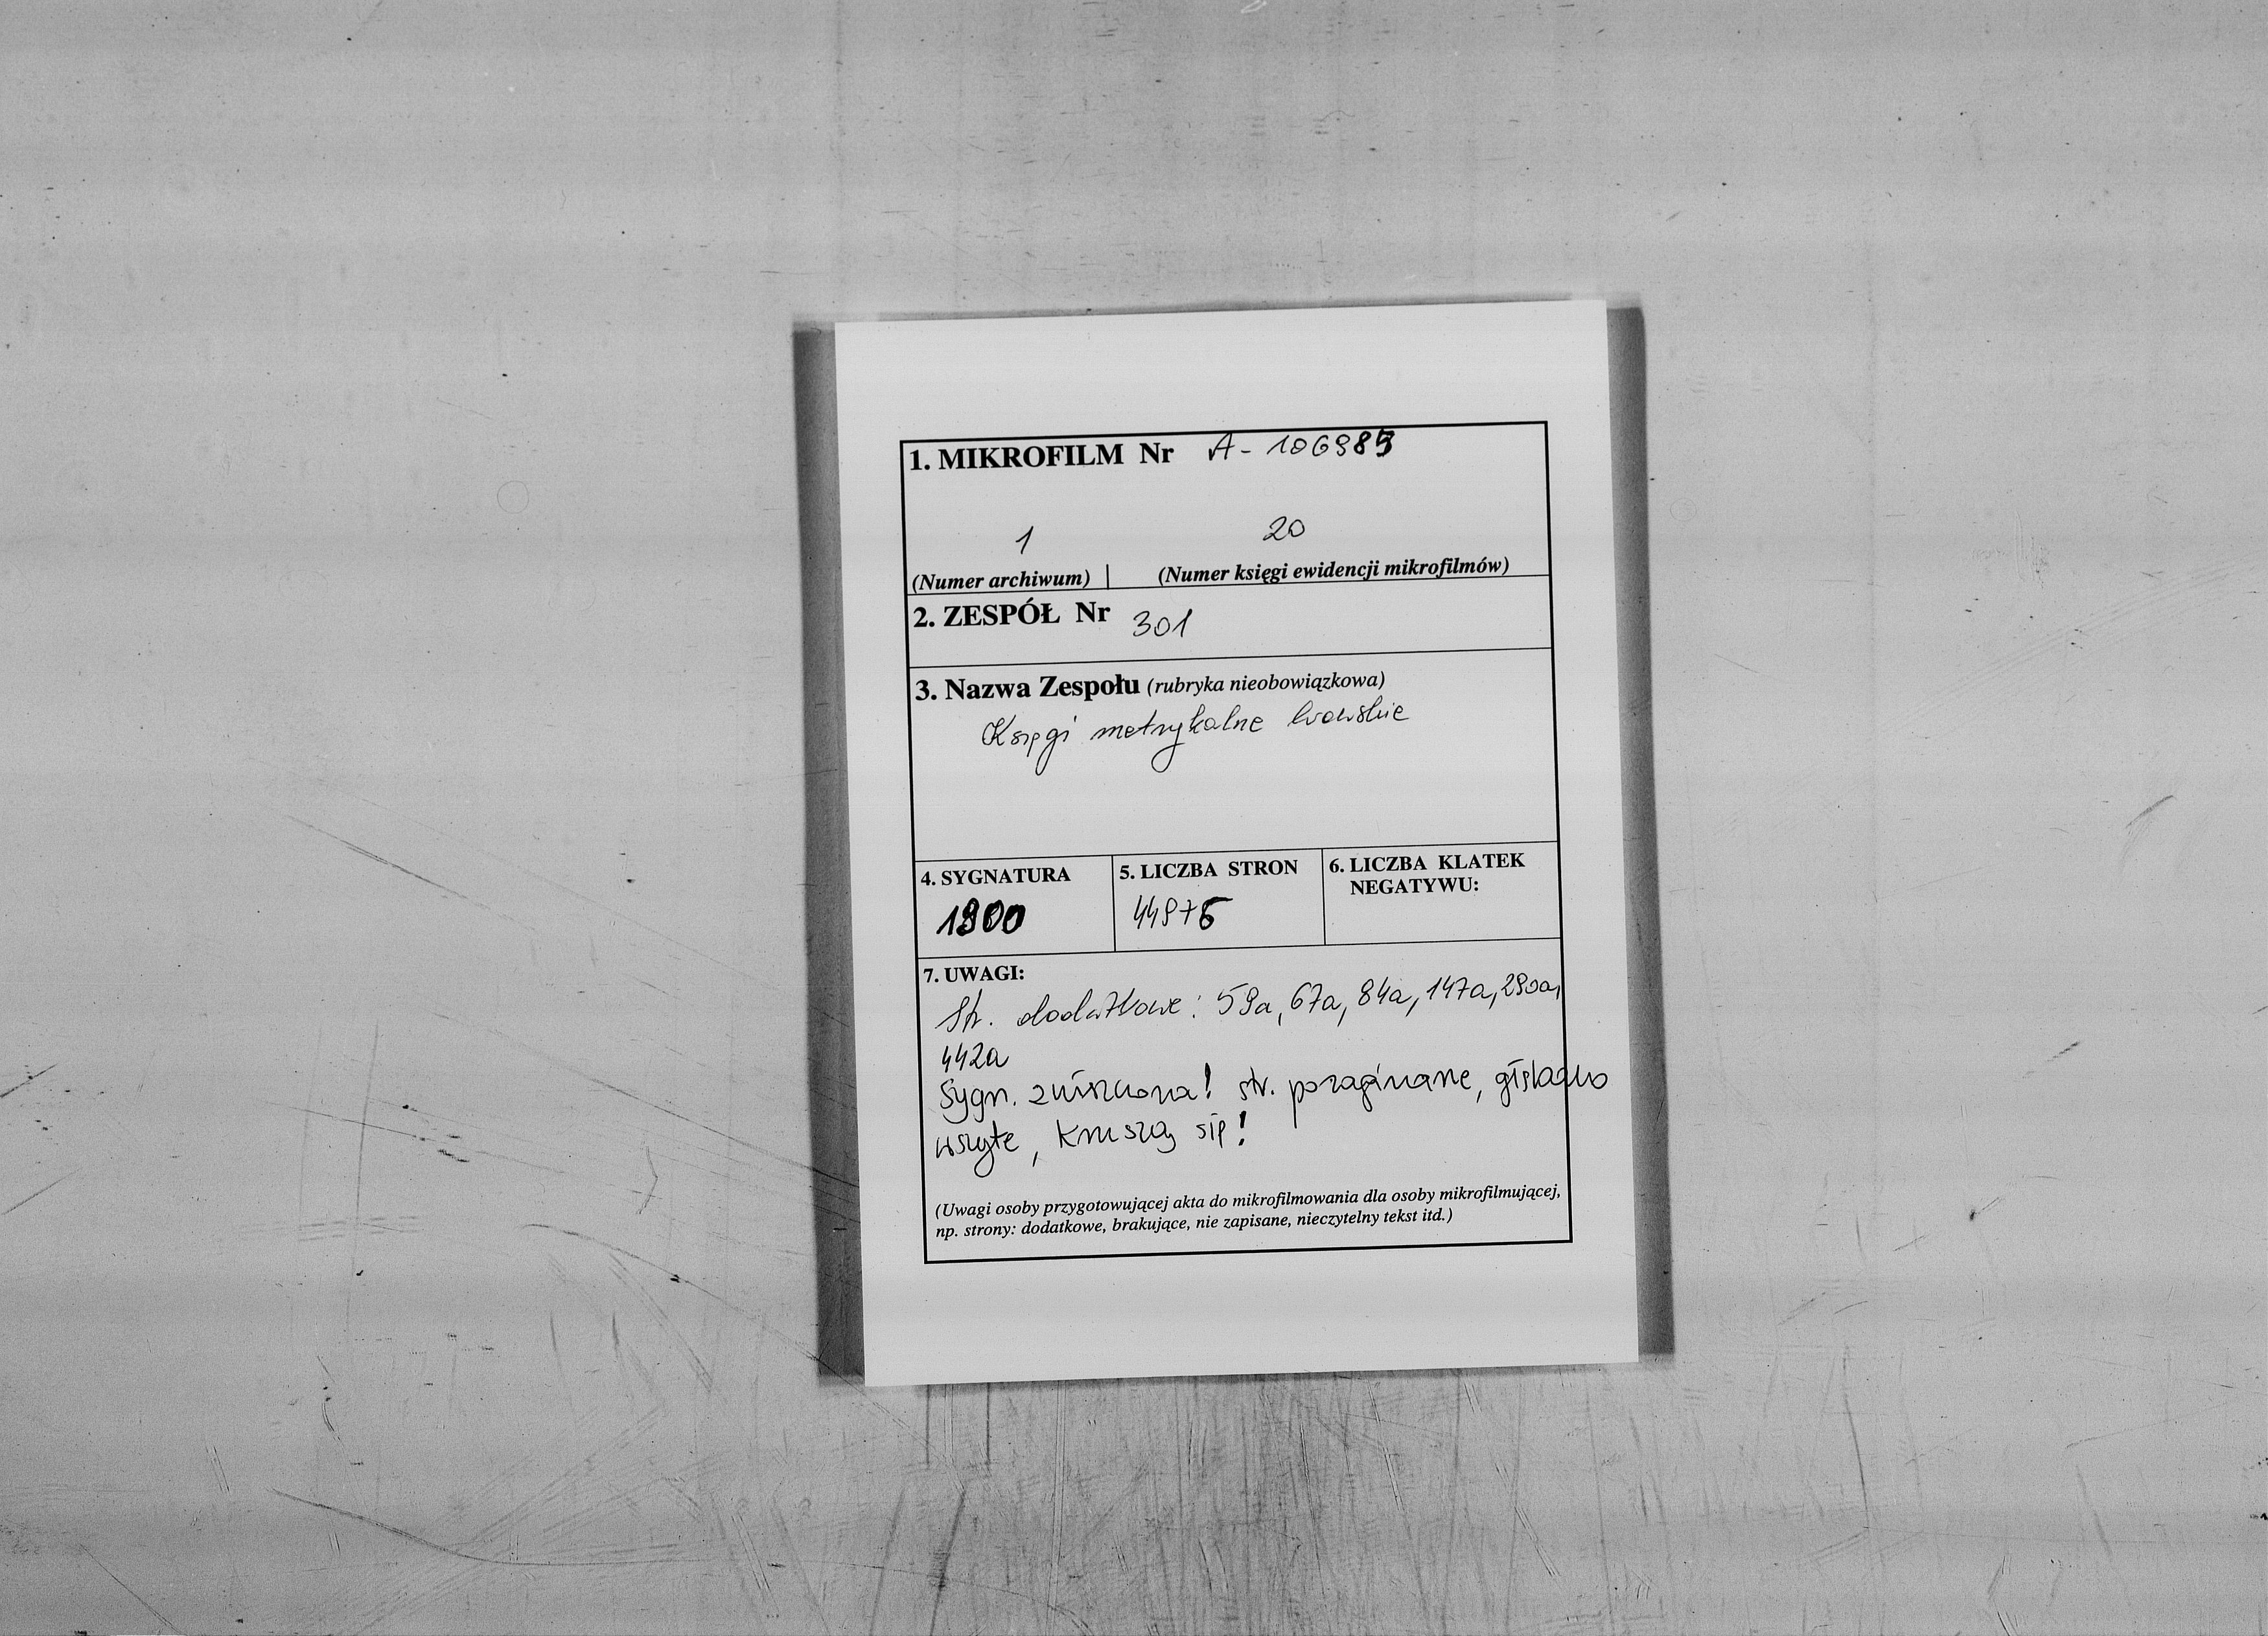 1. MIKROFILM Nr A-106985
1 20
(Numer archiwum) | (Numer księgi ewidencji mikrofilmów)
2. ZESPÓŁ Nr 301
3. Nazwa Zespołu (rubryka nieobowiązkowa)
Księgi metrykalne lwowskie
4. SYGNATURA 5. LICZBA STRON 6. LICZBA KLATEK
NEGATYWU:
1900 449+6
7. UWAGI:
Str. dodatkowe: 59a, 67a, 84a, 147a, 290a,
442a
Sygn. zniszczona! str. pozaginane, głęboko
wszyte, kruszą się!
(Uwagi osoby przygotowującej akta do mikrofilmowania dla osoby mikrofilmującej,
np. strony: dodatkowe, brakujące, nie zapisane, nieczytelny tekst itd.)